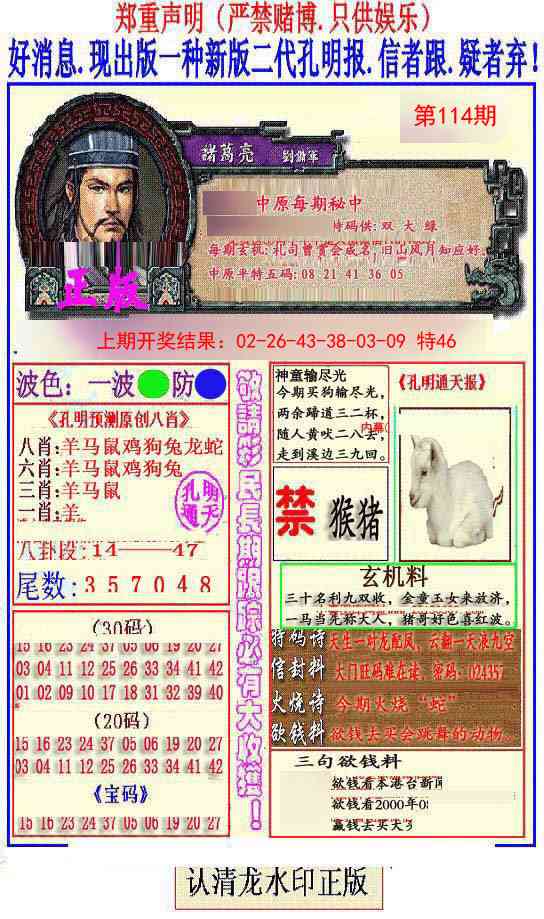 郑重声明（严禁赌博.只供娱乐）
好消息.现出版一种新版二代孔明报.信者跟.疑者弃!
第114期
諸葛亮
中原每期秘中
特码供:双 大 绿
每期玄机:
旧山风月知应好.
中原平特五码:08 21 41 36 05
正版
上期开奖结果：02-26-43-38-03-09 特46
波色：一波 防
《孔明预测原创八肖》
八肖:羊马鼠鸡狗兔龙蛇
六肖:羊马鼠鸡狗兔
三肖:羊马鼠
一肖:羊
孔明通天
八卦段:14——47
尾数:357048
(30码)
15 16 23 24 37 05 06 19 20 27
03 04 11 12 25 26 33 34 41 42
01 02 09 10 17 18 31 32 39 40
(20码)
15 16 23 24 37 05 06 19 20 27
03 04 11 12 25 26 33 34 41 42
《宝码》
15 16 23 24 37 05 06 19 20 27
敬請彩民長期跟踪必有大收獲!
神童输尽光
今期买狗输尽光,
两余蹄道三二杯,
随人黄吠二八去,
走到溪边三九回。
内幕
《孔明通天报》
禁 猴猪
玄机料
三十名利九双收，金童玉女来放济，
一马当死称大人，猪哥好色喜红波。
特码诗 天生一对龙配凤，云翻一天浪九空
信封料 大门旺码难在读，密码：024357
火烧诗 今期火烧“蛇”
欲钱料 欲钱去买会跳舞的动物。
三句欲钱料
欲钱看本港台新闻
欲钱看2000年0
赢钱去买天
认清龙水印正版